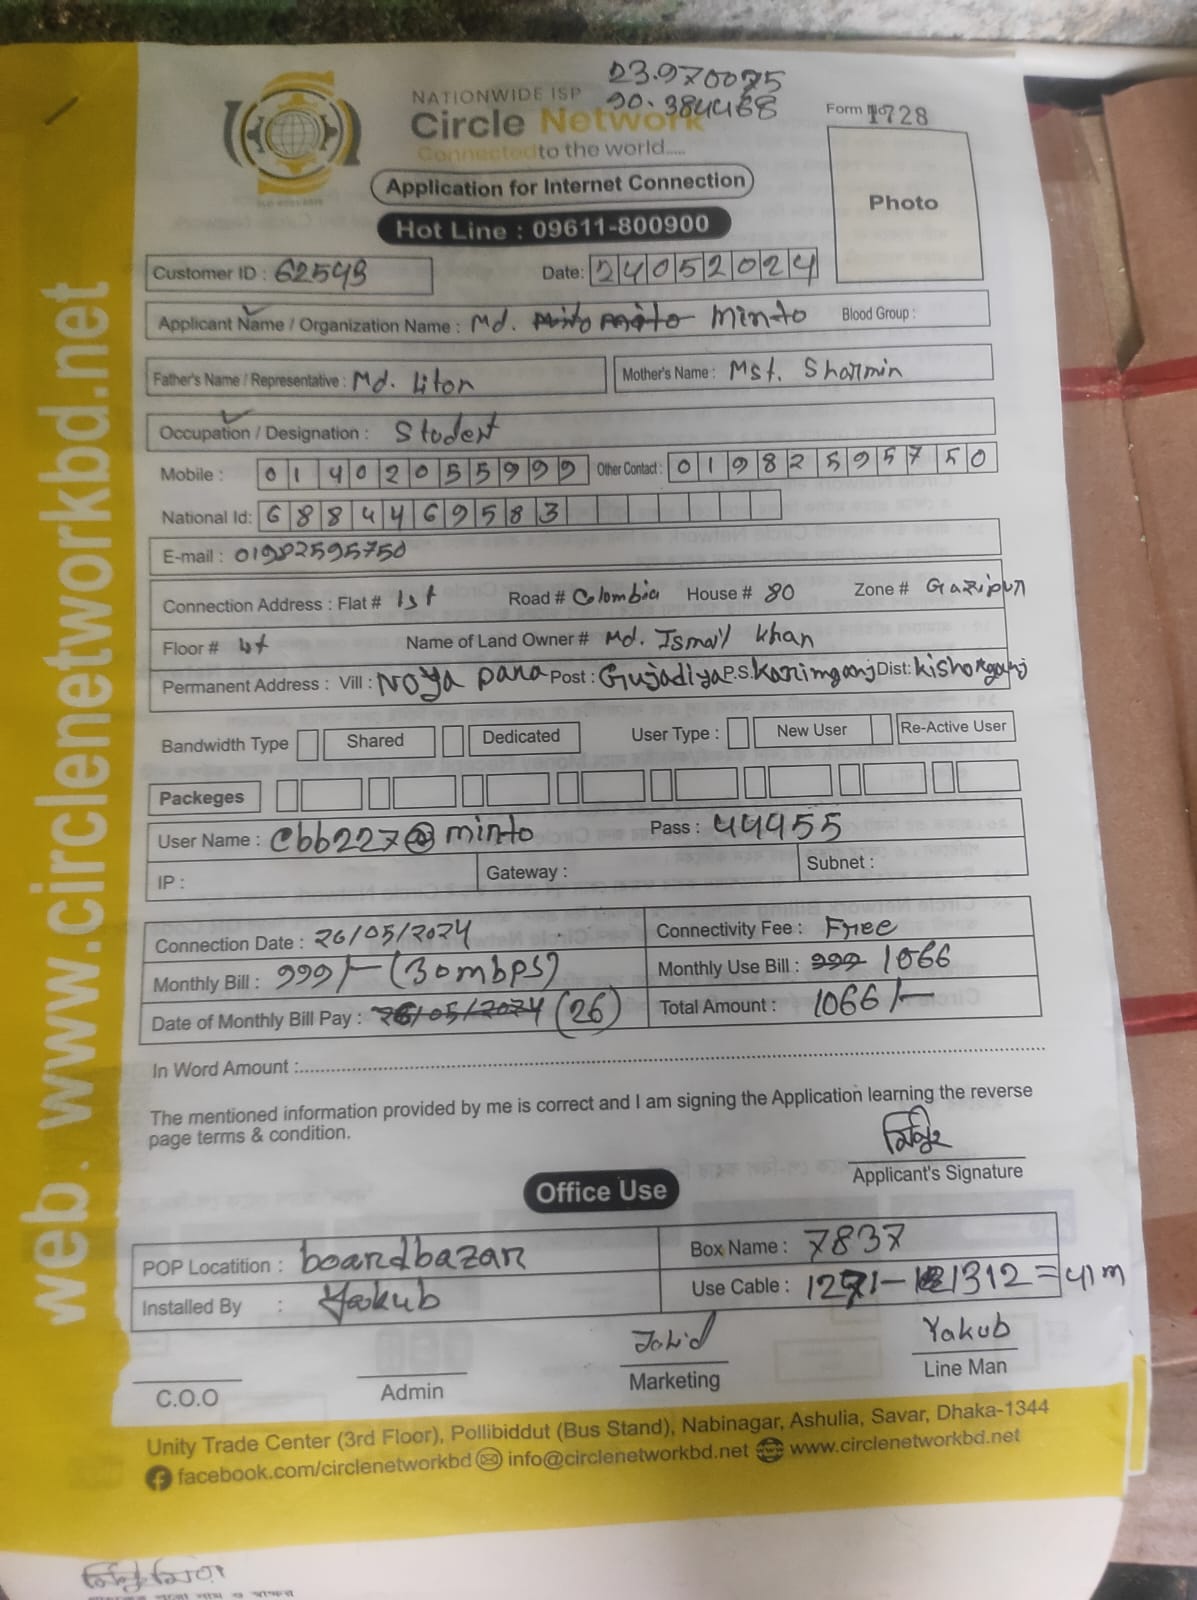 23.970075
NATIONWIDE ISP
90.384468
Circle Network
Connected to the world.....
Form No 1728
Application for Internet Connection
Photo
Hot Line : 09611-800900
Customer ID : 62543 Date: 24052024
Applicant Name / Organization Name : Md. Minto Blood Group :
Father's Name / Representative : Md. Liton Mother's Name : Mst. Sharmin
Occupation / Designation : Student
Mobile : 01402055999 Other Contact : 01982595750
National Id: 6884469583
E-mail : 01982595750
Connection Address : Flat # 1st Road # Colombia House # 80 Zone # Gazipur
Floor # Name of Land Owner # Md. Ismail Khan
Permanent Address : Vill : Noya para Post : Gujadiya P.S. Karimganj Dist: Kishorganj
Bandwidth Type Shared Dedicated User Type : New User Re-Active User
Packeges
User Name : Cbb227@minto Pass : 44455
IP : Gateway : Subnet :
Connection Date : 26/05/2024 Connectivity Fee : Free
Monthly Bill : 999/- (30mbps) Monthly Use Bill : 999 1066
Date of Monthly Bill Pay : 26/05/2024 (26) Total Amount : 1066/-
In Word Amount :
The mentioned information provided by me is correct and I am signing the Application learning the reverse
page terms & condition.
Applicant's Signature
Office Use
POP Locatition : boardbazar Box Name : 7837
Installed By : Yakub Use Cable : 1271-1312=41m
Jahid Yakub
C.O.O Admin Marketing Line Man
Unity Trade Center (3rd Floor), Pollibiddut (Bus Stand), Nabinagar, Ashulia, Savar, Dhaka-1344
facebook.com/circlenetworkbd info@circlenetworkbd.net www.circlenetworkbd.net
web. www.circlenetworkbd.net